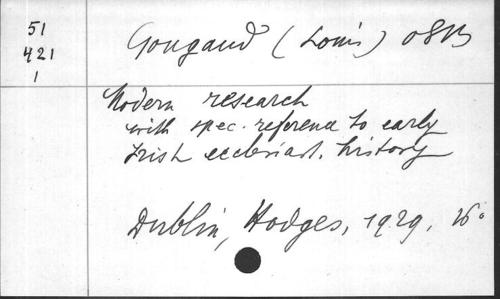 51
421
1
Gougaud (Louis) OSB
Modern research
with spec. reference to early
Irish ecclesiast. history
Dublin, Hodges, 1929, 16°